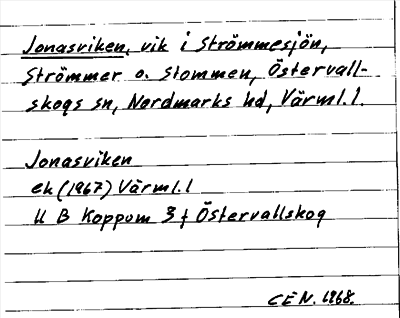 Jonasviken, vik i Strömmesjön,
Strömmer o. Stommen, Östervall-
skogs sn, Nordmarks hd, Värml.l.
Jonasviken
ek (1967) Värml.l
11 B Koppom 3 f Östervallskog
C E N. 1968.